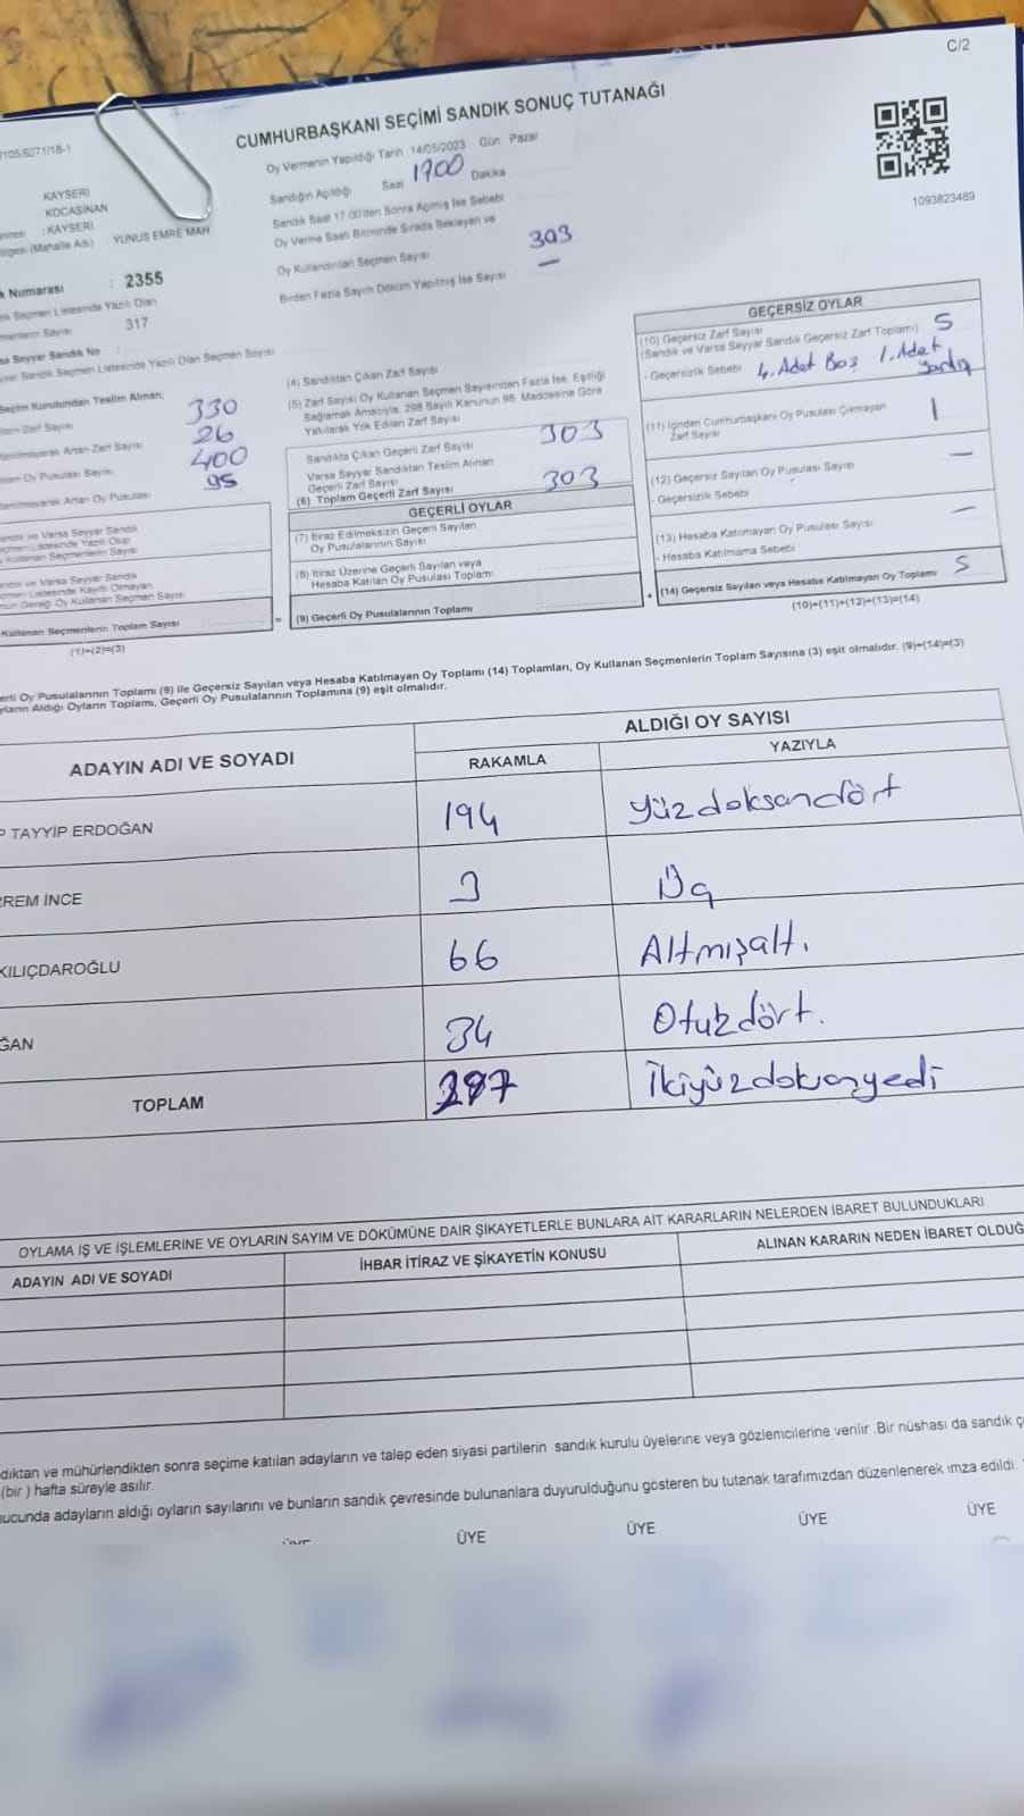 C/2
CUMHURBAŞKANI SEÇİMİ SANDIK SONUÇ TUTANAĞI
Oy Vermenin Yapıldığı Tarih 14/05/2023 Gün Pazar
Sandığın Açıldığı Saat 1700 Dakika
Sandık Saat 17.00'den Sonra Açılmış İse Sebebi
Oy Verme Saati Bitiminde Sırada Bekleyen ve
Oy Kullandırılan Seçmen Sayısı 303
Birden Fazla Sayım Döküm Yapılmış İse Sayısı —
1093823489
KAYSERİ
KOCASİNAN
: KAYSERİ
(Mahalle Adı) YUNUS EMRE MAH
Numarası : 2355
317
Teslim Alınan;
330
26
400
95
(4) Sandıktan Çıkan Zarf Sayısı
(5) Zarf Sayısı Oy Kullanan Seçmen Sayısından Fazla İse, Eşitliği
Sağlamak Amacıyla, 298 Sayılı Kanunun 98. Maddesine Göre
Yakılarak Yok Edilen Zarf Sayısı
Sandıkta Çıkan Geçerli Zarf Sayısı 303
Varsa Seyyar Sandıktan Teslim Alınan
Geçerli Zarf Sayısı
(6) Toplam Geçerli Zarf Sayısı 303
GEÇERLİ OYLAR
(7) İtiraz Edilmeksizin Geçerli Sayılan
Oy Pusulalarının Sayısı
(8) İtiraz Üzerine Geçerli Sayılan veya
Hesaba Katılan Oy Pusulası Toplamı
(9) Geçerli Oy Pusulalarının Toplamı
GEÇERSİZ OYLAR
(10) Geçersiz Zarf Sayısı
(Sandık ve Varsa Seyyar Sandık Geçersiz Zarf Toplamı) 5
- Geçersizlik Sebebi 4. Adet Boş 1. Adet
(11) İçinden Cumhurbaşkanı Oy Pusulası Çıkmayan
Zarf Sayısı 1
(12) Geçersiz Sayılan Oy Pusulası Sayısı —
- Geçersizlik Sebebi
(13) Hesaba Katılmayan Oy Pusulası Sayısı —
- Hesaba Katılmama Sebebi
(14) Geçersiz Sayılan veya Hesaba Katılmayan Oy Toplamı 5
(10)+(11)+(12)+(13)=(14)
Kullanan Seçmenlerin Toplam Sayısı
(1)+(2)=(3)
Oy Pusulalarının Toplamı (9) ile Geçersiz Sayılan veya Hesaba Katılmayan Oy Toplamı (14) Toplamları, Oy Kullanan Seçmenlerin Toplam Sayısına (3) eşit olmalıdır. (9)+(14)=(3)
Aldığı Oyların Toplamı, Geçerli Oy Pusulalarının Toplamına (9) eşit olmalıdır.
ADAYIN ADI VE SOYADI
ALDIĞI OY SAYISI
RAKAMLA YAZIYLA
TAYYİP ERDOĞAN 194 yüzdoksandört
REM İNCE 3 Üç
KILIÇDAROĞLU 66 Altmışaltı
ĞAN 34 Otuzdört.
TOPLAM 297 İkiyüzdoksanyedi
OYLAMA İŞ VE İŞLEMLERİNE VE OYLARIN SAYIM VE DÖKÜMÜNE DAİR ŞİKAYETLERLE BUNLARA AİT KARARLARIN NELERDEN İBARET BULUNDUKLARI
ADAYIN ADI VE SOYADI İHBAR İTİRAZ VE ŞİKAYETİN KONUSU ALINAN KARARIN NEDEN İBARET OLDUĞ
dıktan ve mühürlendikten sonra seçime katılan adayların ve talep eden siyasi partilerin sandık kurulu üyelerine veya gözlemcilerine verilir. Bir nüshası da sandık ç
(bir) hafta süreyle asılır.
ucunda adayların aldığı oyların sayılarını ve bunların sandık çevresinde bulunanlara duyurulduğunu gösteren bu tutanak tarafımızdan düzenlenerek imza edildi.
ÜYE ÜYE ÜYE ÜYE